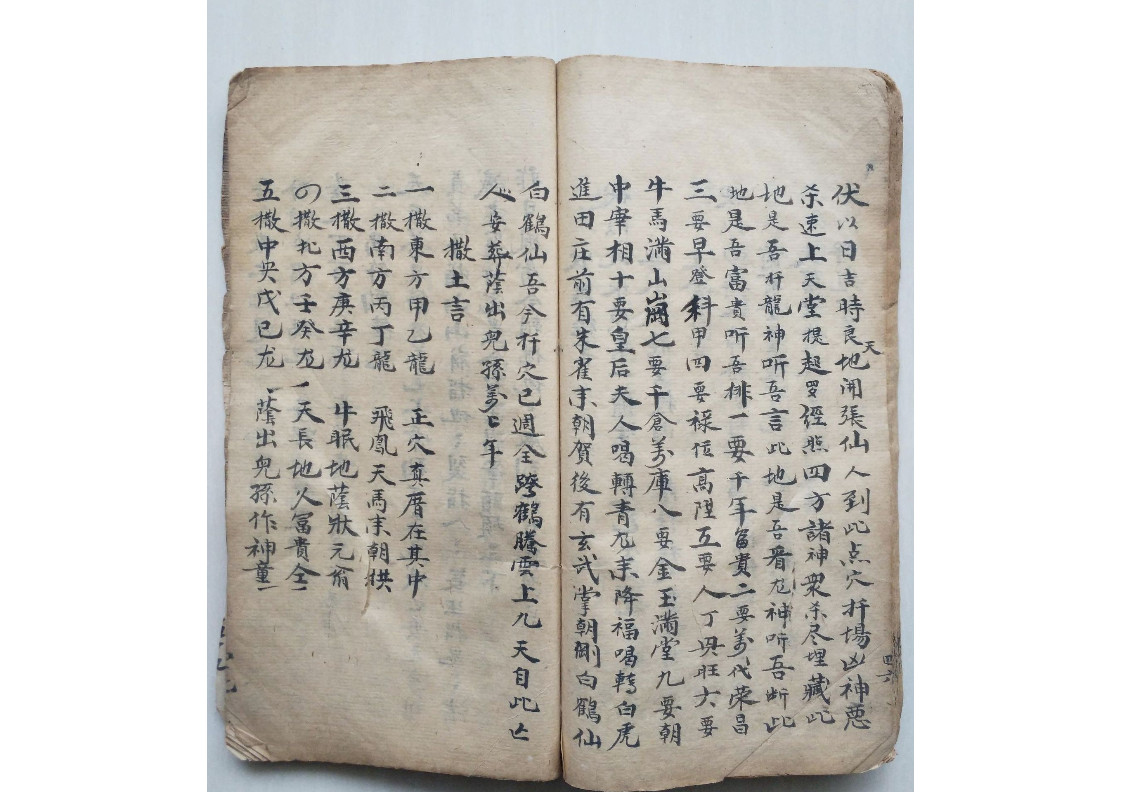 伏以日吉時良天地開張仙人到此点穴扦場凶神悪
杀速上天堂提起罗経照四方諸神衆杀尽埋藏此
地是吾扦龍神听吾言此地是吾看尨神听吾断此
地是吾富貴听吾排一要千年富貴二要萬代荣昌
三要早登科甲四要禄位高陞五要人丁興旺六要
牛馬滿山崗七要千倉萬庫八要金玉滿堂九要朝
中宰相十要皇后夫人喝轉青尨来降福喝轉白虎
進田庄前有朱雀来朝賀後有玄武掌朝剛白鶴仙
四六
白鶴仙吾今扦穴已週全跨鶴騰雲上九天自此亡
人安葬蔭出兒孫萬〻年
撒土言
一撒東方甲乙龍 正穴真厝在其中
二撒南方丙丁龍 飛鳳天馬来朝拱
三撒西方庚辛尨 牛眠地蔭狀元翁
四撒北方壬癸尨 天長地人富貴全
五撒中央戊己尨 蔭出兒孫作神童